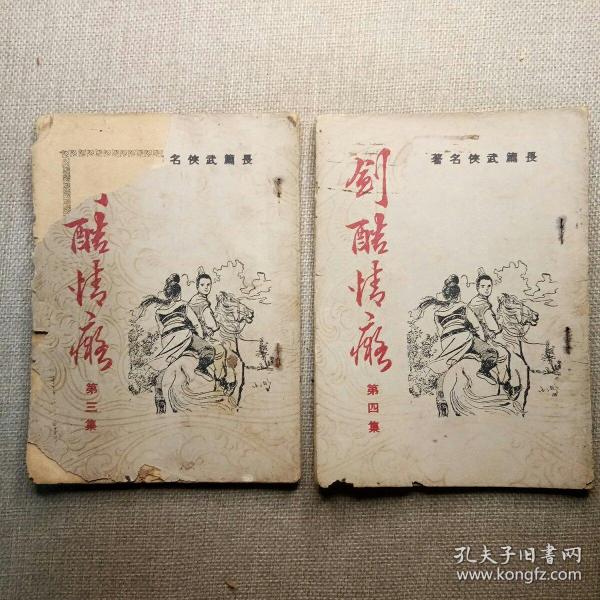 長篇武俠名
酷情癡
第三集
長篇武俠名著
劍酷情癡
第四集
孔夫子旧书网
www.kongfz.com